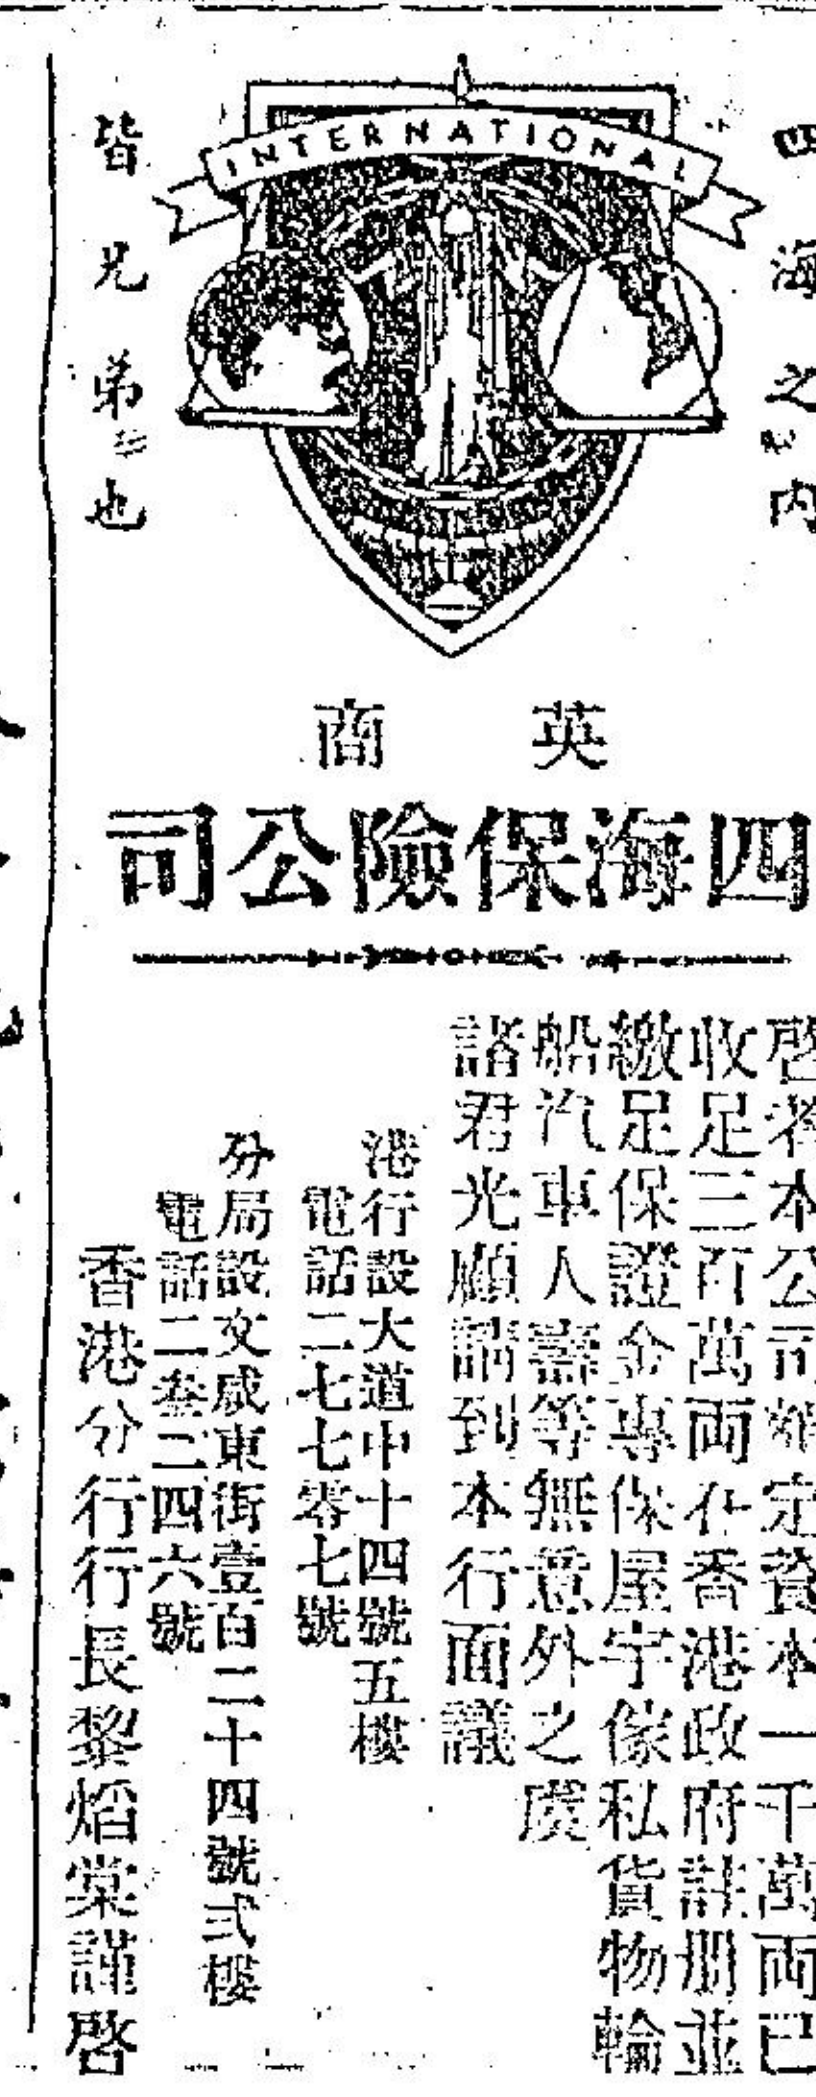 INTERNATIONAL
四海之内
皆兄弟也
英商
四海保險公司
啓者本公司額定資本一千萬両已
收足三百萬両在香港政府註册並
繳足保證金專保屋宇傢私貨物輪
船汽車人壽等無意外之虞
諸君光顧請到本行面議
港行設大道中十四號五樓
電話二七七零七號
分局設文咸東街壹百二十四號弍樓
電話二叁二四六號
香港分行行長黎焰棠謹啓